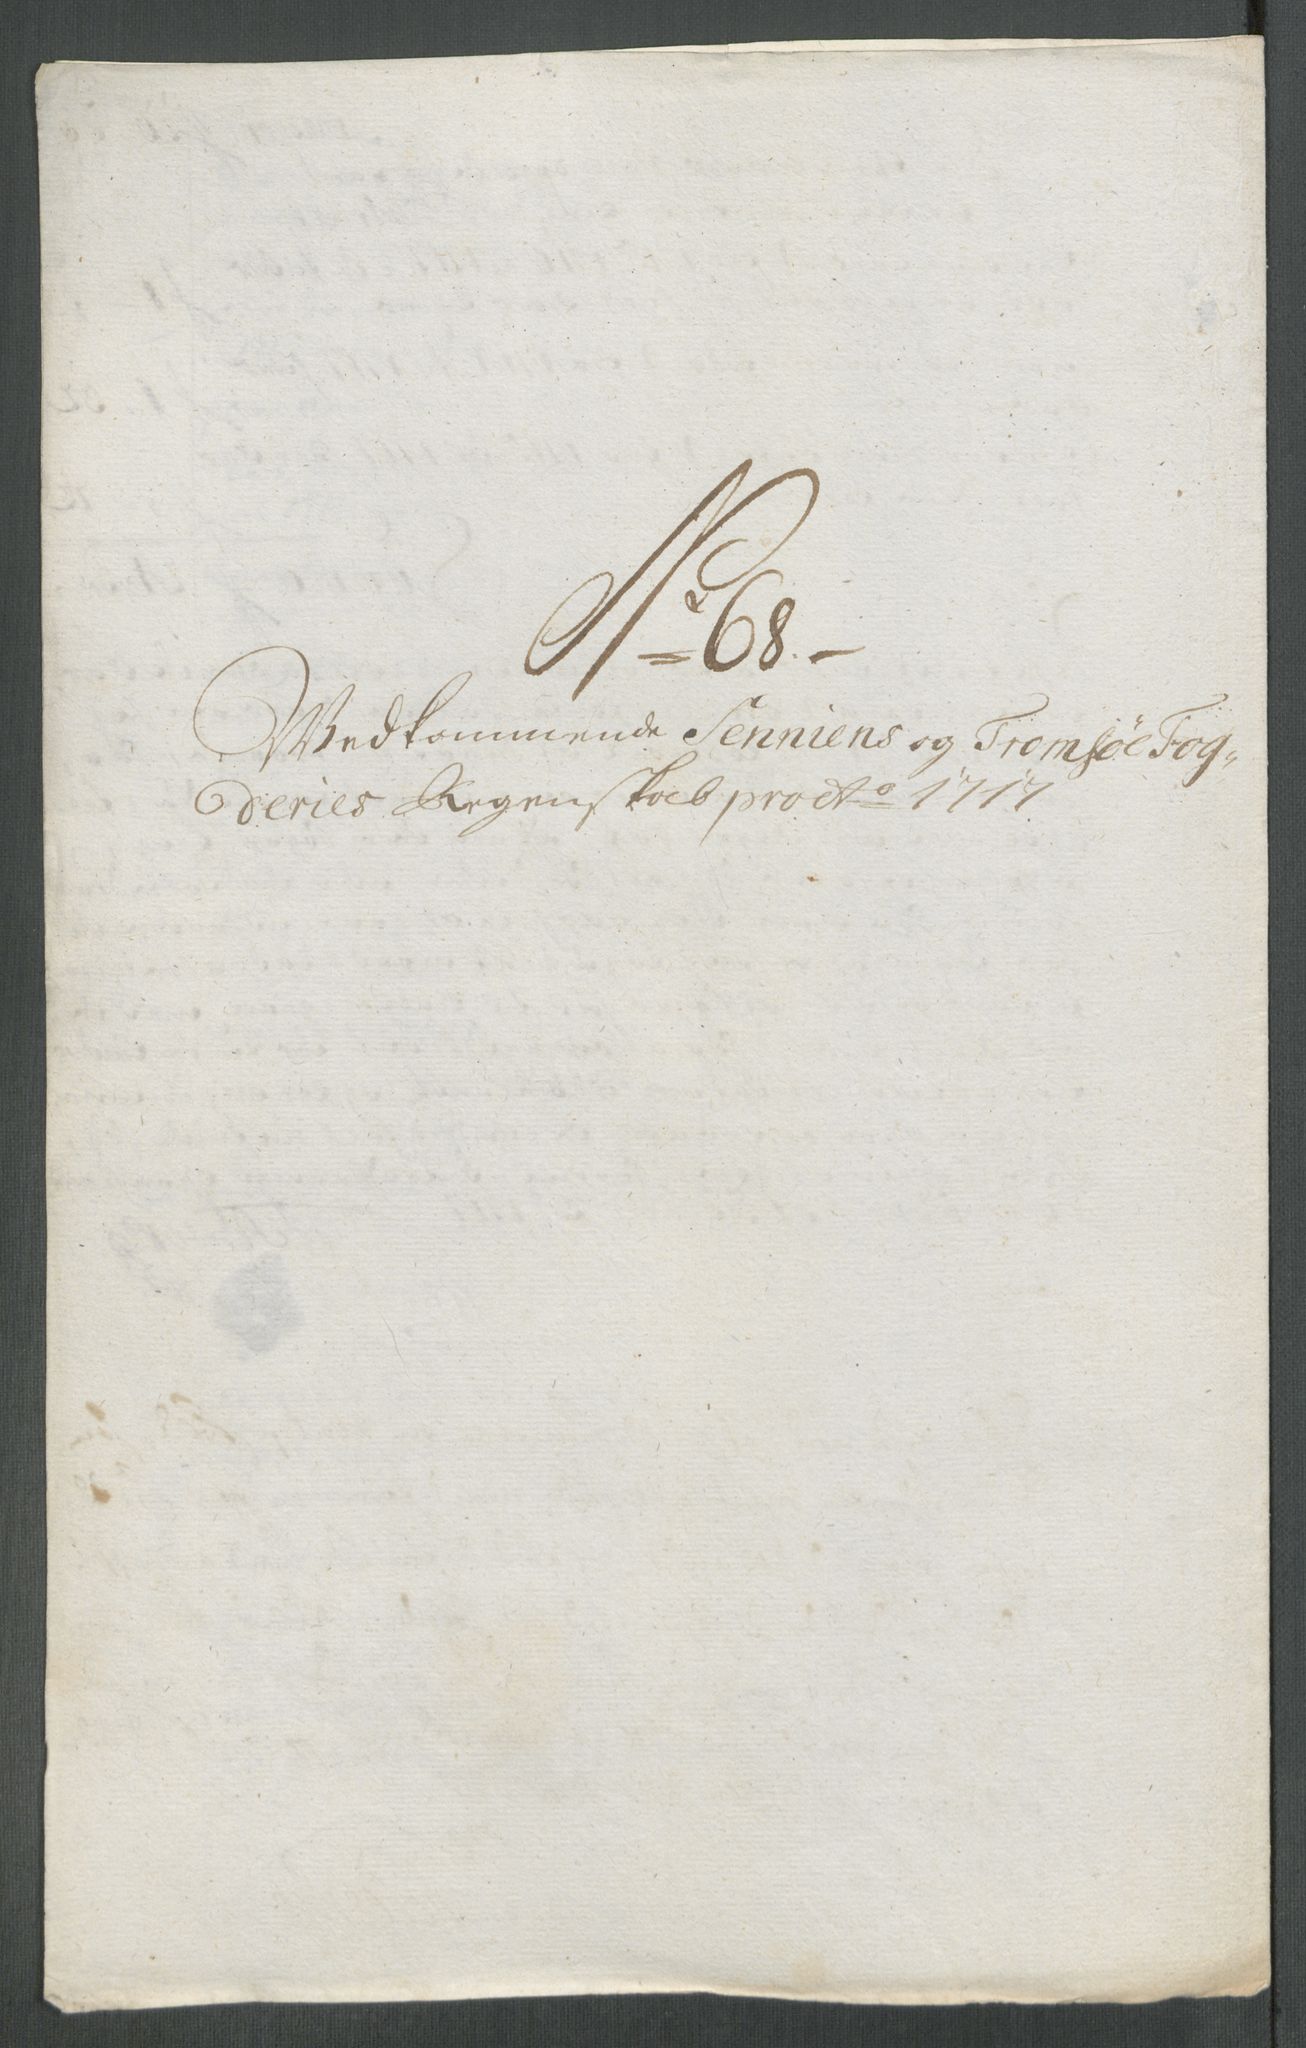 No 68.
Vedkommende Senniens og Tromsöe Fog-
deries Regenskab pro Ao 1717